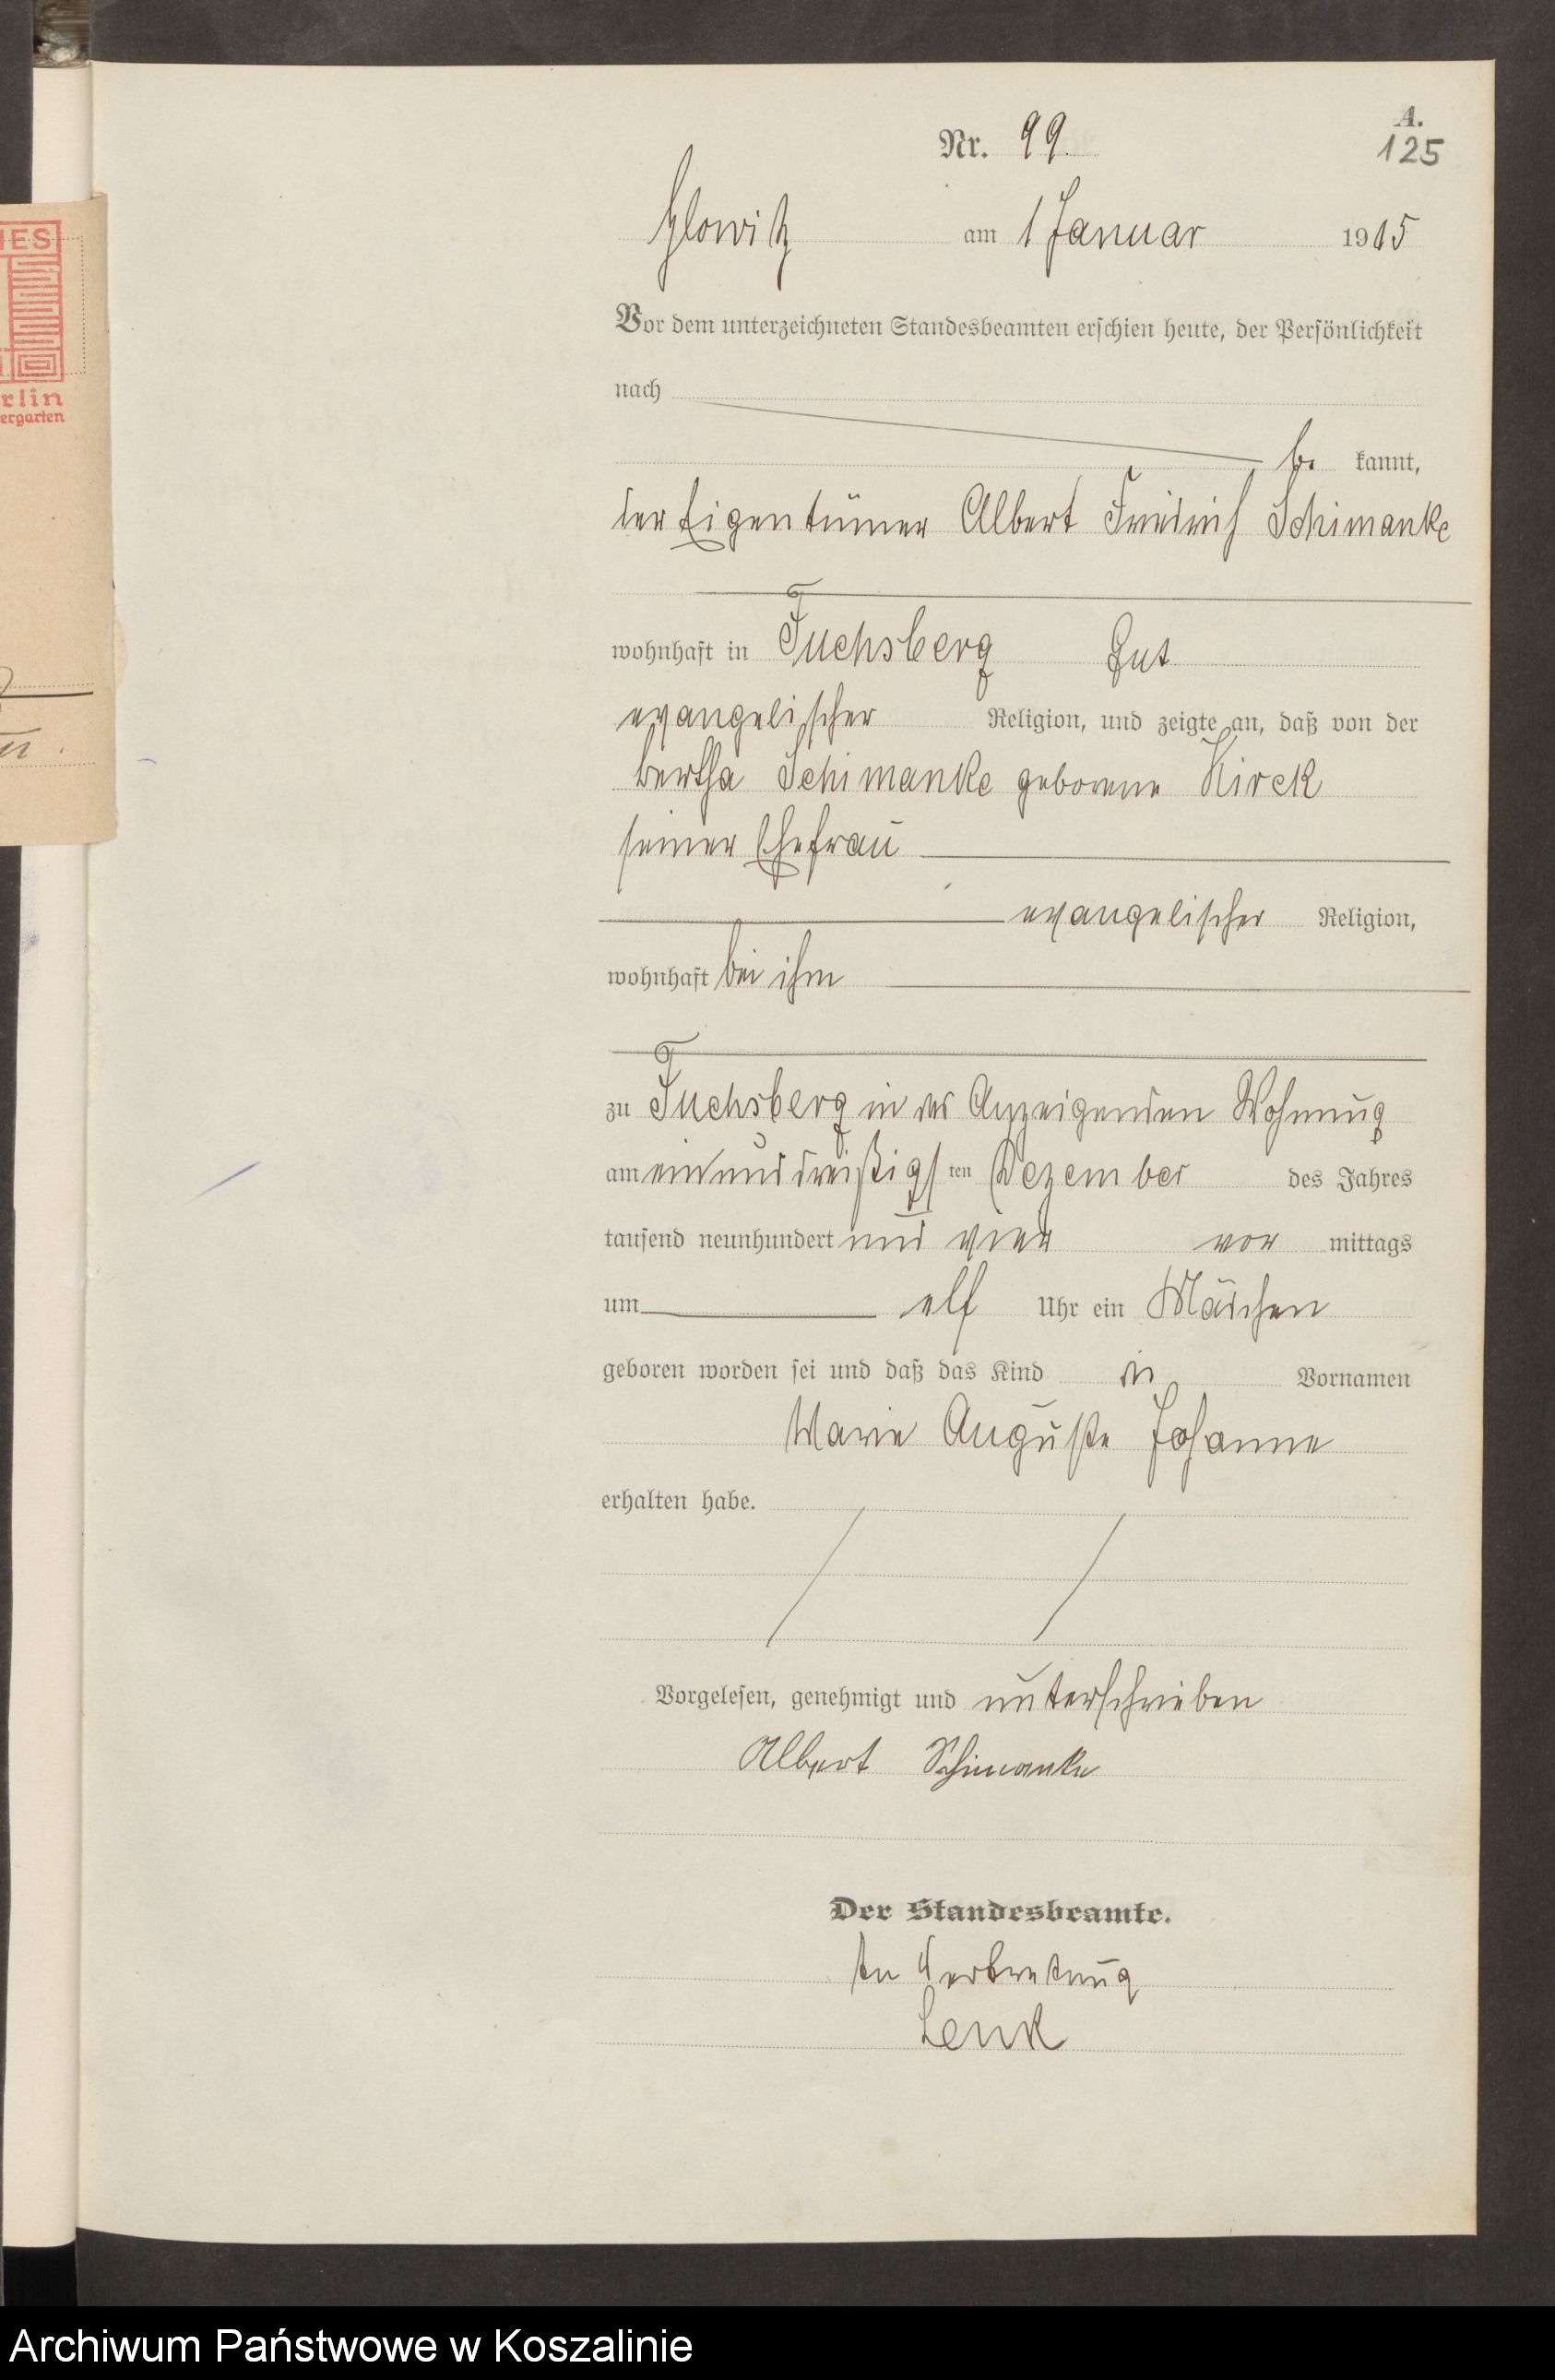 A.
Nr. 99.
125
Glowitz am 1 Januar 1905
Vor dem unterzeichneten Standesbeamten erschien heute, der Persönlichkeit
nach
be kannt,
der Eigentümer Albert Friedrich Schimanke
wohnhaft in Fuchsberg Gut
evangelischer Religion, und zeigte an, daß von der
Bertha Schimanke geborene Kirck
seiner Ehefrau
evangelischer Religion,
wohnhaft bei ihm
zu Fuchsberg in des Anzeigenden Wohnung
am einunddreißigsten Dezember des Jahres
tausend neunhundert und vier vor mittags
um elf Uhr ein Mädchen
geboren worden sei und daß das Kind die Vornamen
Marie Auguste Johanne
erhalten habe.
Vorgelesen, genehmigt und unterschrieben
Albert Schimanke
Der Standesbeamte.
In Vertretung
Lenk
IES
rlin
ergarten
Archiwum Państwowe w Koszalinie